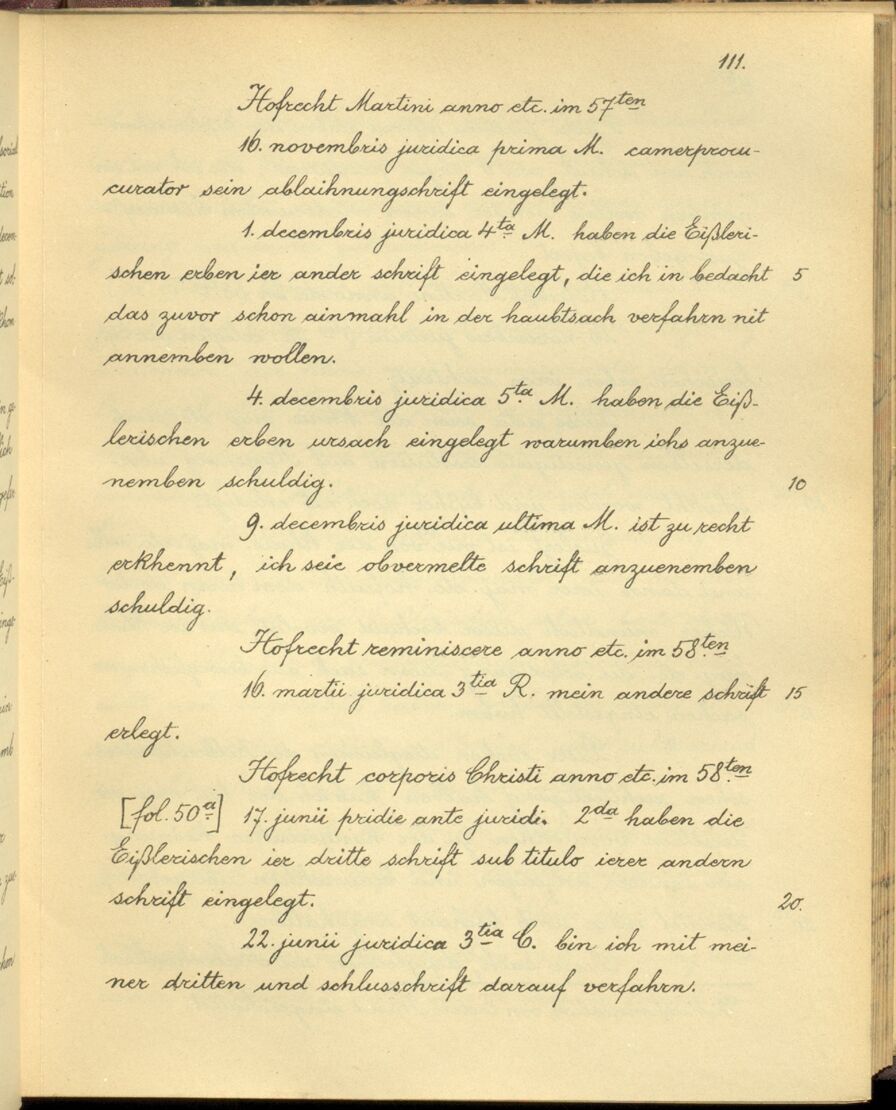 111.
Hofrecht Martini anno etc. im 57ten
16. novembris juridica prima M. camerprocu-
curator sein ablaihnungschrift eingelegt.
1. decembris juridica 4ta M. haben die Eißleri-
schen erben ier ander schrift eingelegt, die ich in bedacht 5
das zuvor schon ainmahl in der haubtsach verfahrn nit
annemben wollen.
4. decembris juridica 5ta M. haben die Eiß-
lerischen erben ursach eingelegt warumben ichs anzue-
nemben schuldig. 10
9. decembris juridica ultima M. ist zu recht
erkhennt, ich seie obvermelte schrift anzuenemben
schuldig.
Hofrecht reminiscere anno etc. im 58ten
16. martii juridica 3tia R. mein andere schrift 15
erlegt.
Hofrecht corporis Christi anno etc. im 58ten
[fol. 50a] 17. junii pridie ante juridi. 2da haben die
Eißlerischen ier dritte schrift sub titulo ierer andern
schrift eingelegt. 20.
22. junii juridica 3tia C. bin ich mit mei-
ner dritten und schlusschrift darauf verfahrn.